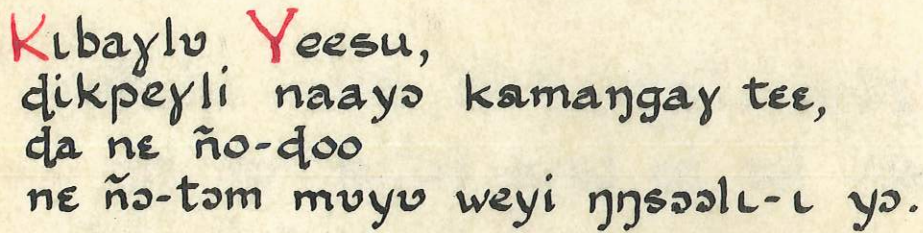 Kɩbaɣlʋ Yeesu,
ɖikpeɣli naayɔ kamaŋgaɣ tɛɛ,
ɖa nɛ ño-ɖoo
nɛ ñɔ-tɔm mʋyʋ weyi ŋŋsɔɔlɩ-ɩ yɔ.